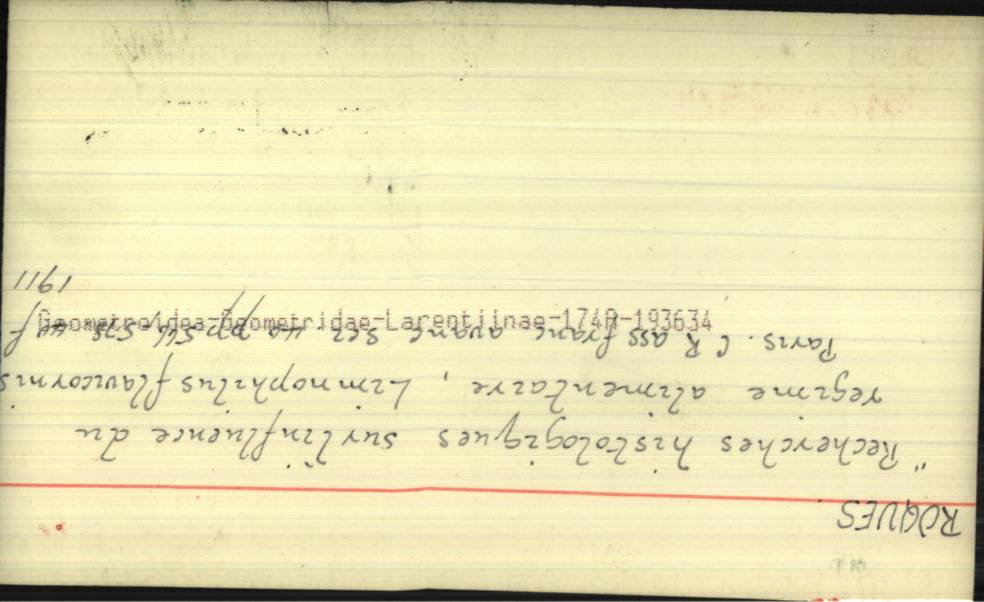 ROQUES
"Recherches histologiques sur l'influence du
regime alimentaire, Limnophilus flavicornis
Paris. C R ass franc avanc sci 40 pp 541-578
1911
Geometroidea-Geometridae-Larentiinae-1740-193634